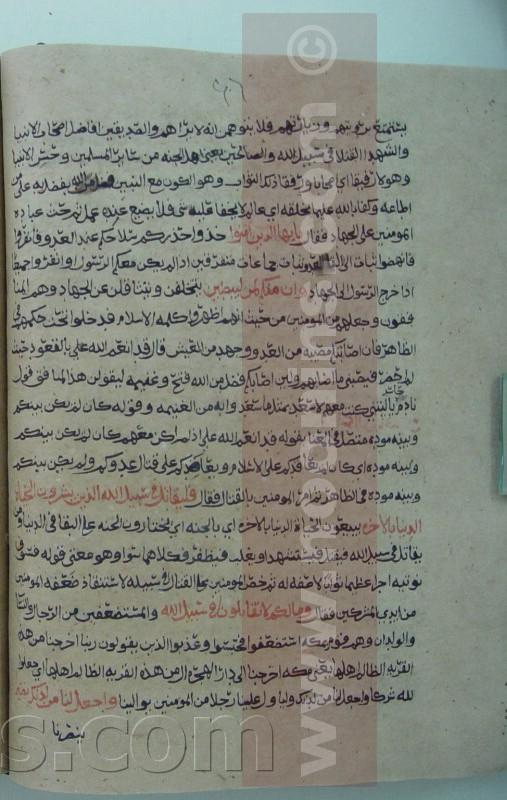 يستمتع برؤيتهم وزيارتهم فلا يتوهمن انه لا يراهم والصديقين افاضل اصحاب الانبيا
والشهدا القتلا في سبيل الله والصالحين يعني اهل الجنه من ساير المسلمين وحسن الانبيا
وهولا رفيقا اي اصحابا ورفقا ذلك الثواب وهو الكون مع النبيين فضل من الله تفضل به على من
اطاعه وكفا بالله عليما بخلقه اي عالم لا يخفا عليه شي فلا يضيع عنده عمل ثم حث عباده
المومنين على الجهاد فقال يايها الذين امنوا خذوا حذركم سلاحكم عند العدو فانفروا
فانهضوا ثبات الى العدو ثبات جماعات متفرقين اذا لم يكن معكم الرسول او انفروا جميعا
اذا خرج الرسول الى الجهاد وان منكم لمن ليبطين يتخلفن ويتثاقلن عن الجهاد وهم المنا
فقون وجعلهم من المومنين من حيث انهم اظهروا كلمه الاسلام فدخلوا تحت حكمهم في
الظاهر فان اصابتكم مصيبه من العدو وجهد من العيش قال قد انعم الله علي بالقعود حيث
لم احضر فيصيبني ما اصابهم ولين اصابكم فضل من الله فتح وغنيمه ليقولن هذا المنافق قول
نادم حاسد ياليتني كنت معهم لاسعد بمثل ما سعدوا به من الغنيمه وقوله كان لم يكن بينكم
وبينه موده متصل في المعنا بقوله قد انعم الله علي اذ لم اكن معهم كان لم يكن بينكم
وبينه موده اي كان لم يعاقدكم على الاسلام ويعاضدكم على قتال عدوكم ولم يكن بينكم
وبينه موده في الظاهر ثم امر المومنين بالقتال فقال فليقاتل في سبيل الله الذين يشرون الحياه
الدنيا بالاخره يبيعون الحياه الدنيا بالاخره اي بالجنه اي يختارون الجنه على البقا في الدنيا ومن
يقاتل في سبيل الله فيقتل فيستشهد او يغلب فيظفر فكلاهما سوا وهو معنى قوله فسوف
نوتيه اجرا عظيما ثوابا لا صفه له ثم حض المومنين على القتال في سبيله لاستنقاذ ضعفه المومنين
من ايدي المشركين فقال ومالكم لا تقاتلون في سبيل الله والمستضعفين من الرجال والنسا
والولدان وهم قوم بمكه استضعفوا فحبسوا وعذبوا الذين يقولون ربنا اخرجنا من هذه
القريه الظالم اهلها يعني مكه اخرجنا الى دار الهجره من هذه القريه الظالم اهلها اي جعلوا
لله شركا واجعل لنا من لدنك وليا ول علينا رجلا من المومنين يوالينا واجعل لنا من لدنك نصيرا
ينصرنا
www.noorinfo.com ©
s.com